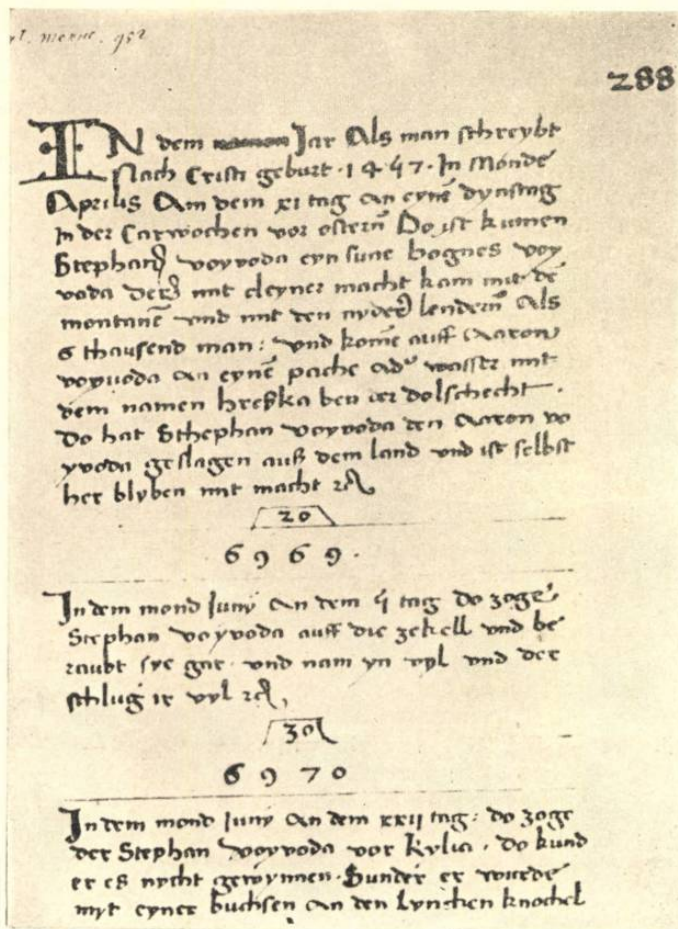 288
IN dem Jar Als man schreybt
Nach Cristi geburt · 1457 · In Monde
Aprilis Am dem xi tag an eynē dynstag
In der Carwochen vor osterñ Do ist kumen
Stephan voyvoda eyn sune bognes voy
voda der mit cleyner macht kam mit dē
montanē vnd mit den nyder lenderñ Als
6 thausend man: vnd komē auff Aaron
voyvoda an eynē pache ad wasser mit
dem namen hreska ben der dolschecht ·
Do hat Sthephan voyvoda den Aaron vo
yvoda geslagen auß dem land vnd ist selbst
her blyben mit macht
20
6969 ·
In dem mond Juny An dem ij tag do zoge
Stephan voyvoda auff die zekell vnd be
raubt sye gar · vnd nam yn vyl vnd der
schlug ir vyl
30
6970
In dem mond Juny An dem xxij tag: do zoge
der Stephan voyvoda vor Kylia · Do kund
er es nycht gewynnen · Sunder er wurde
myt eyner buchsen an den lyncken knochel